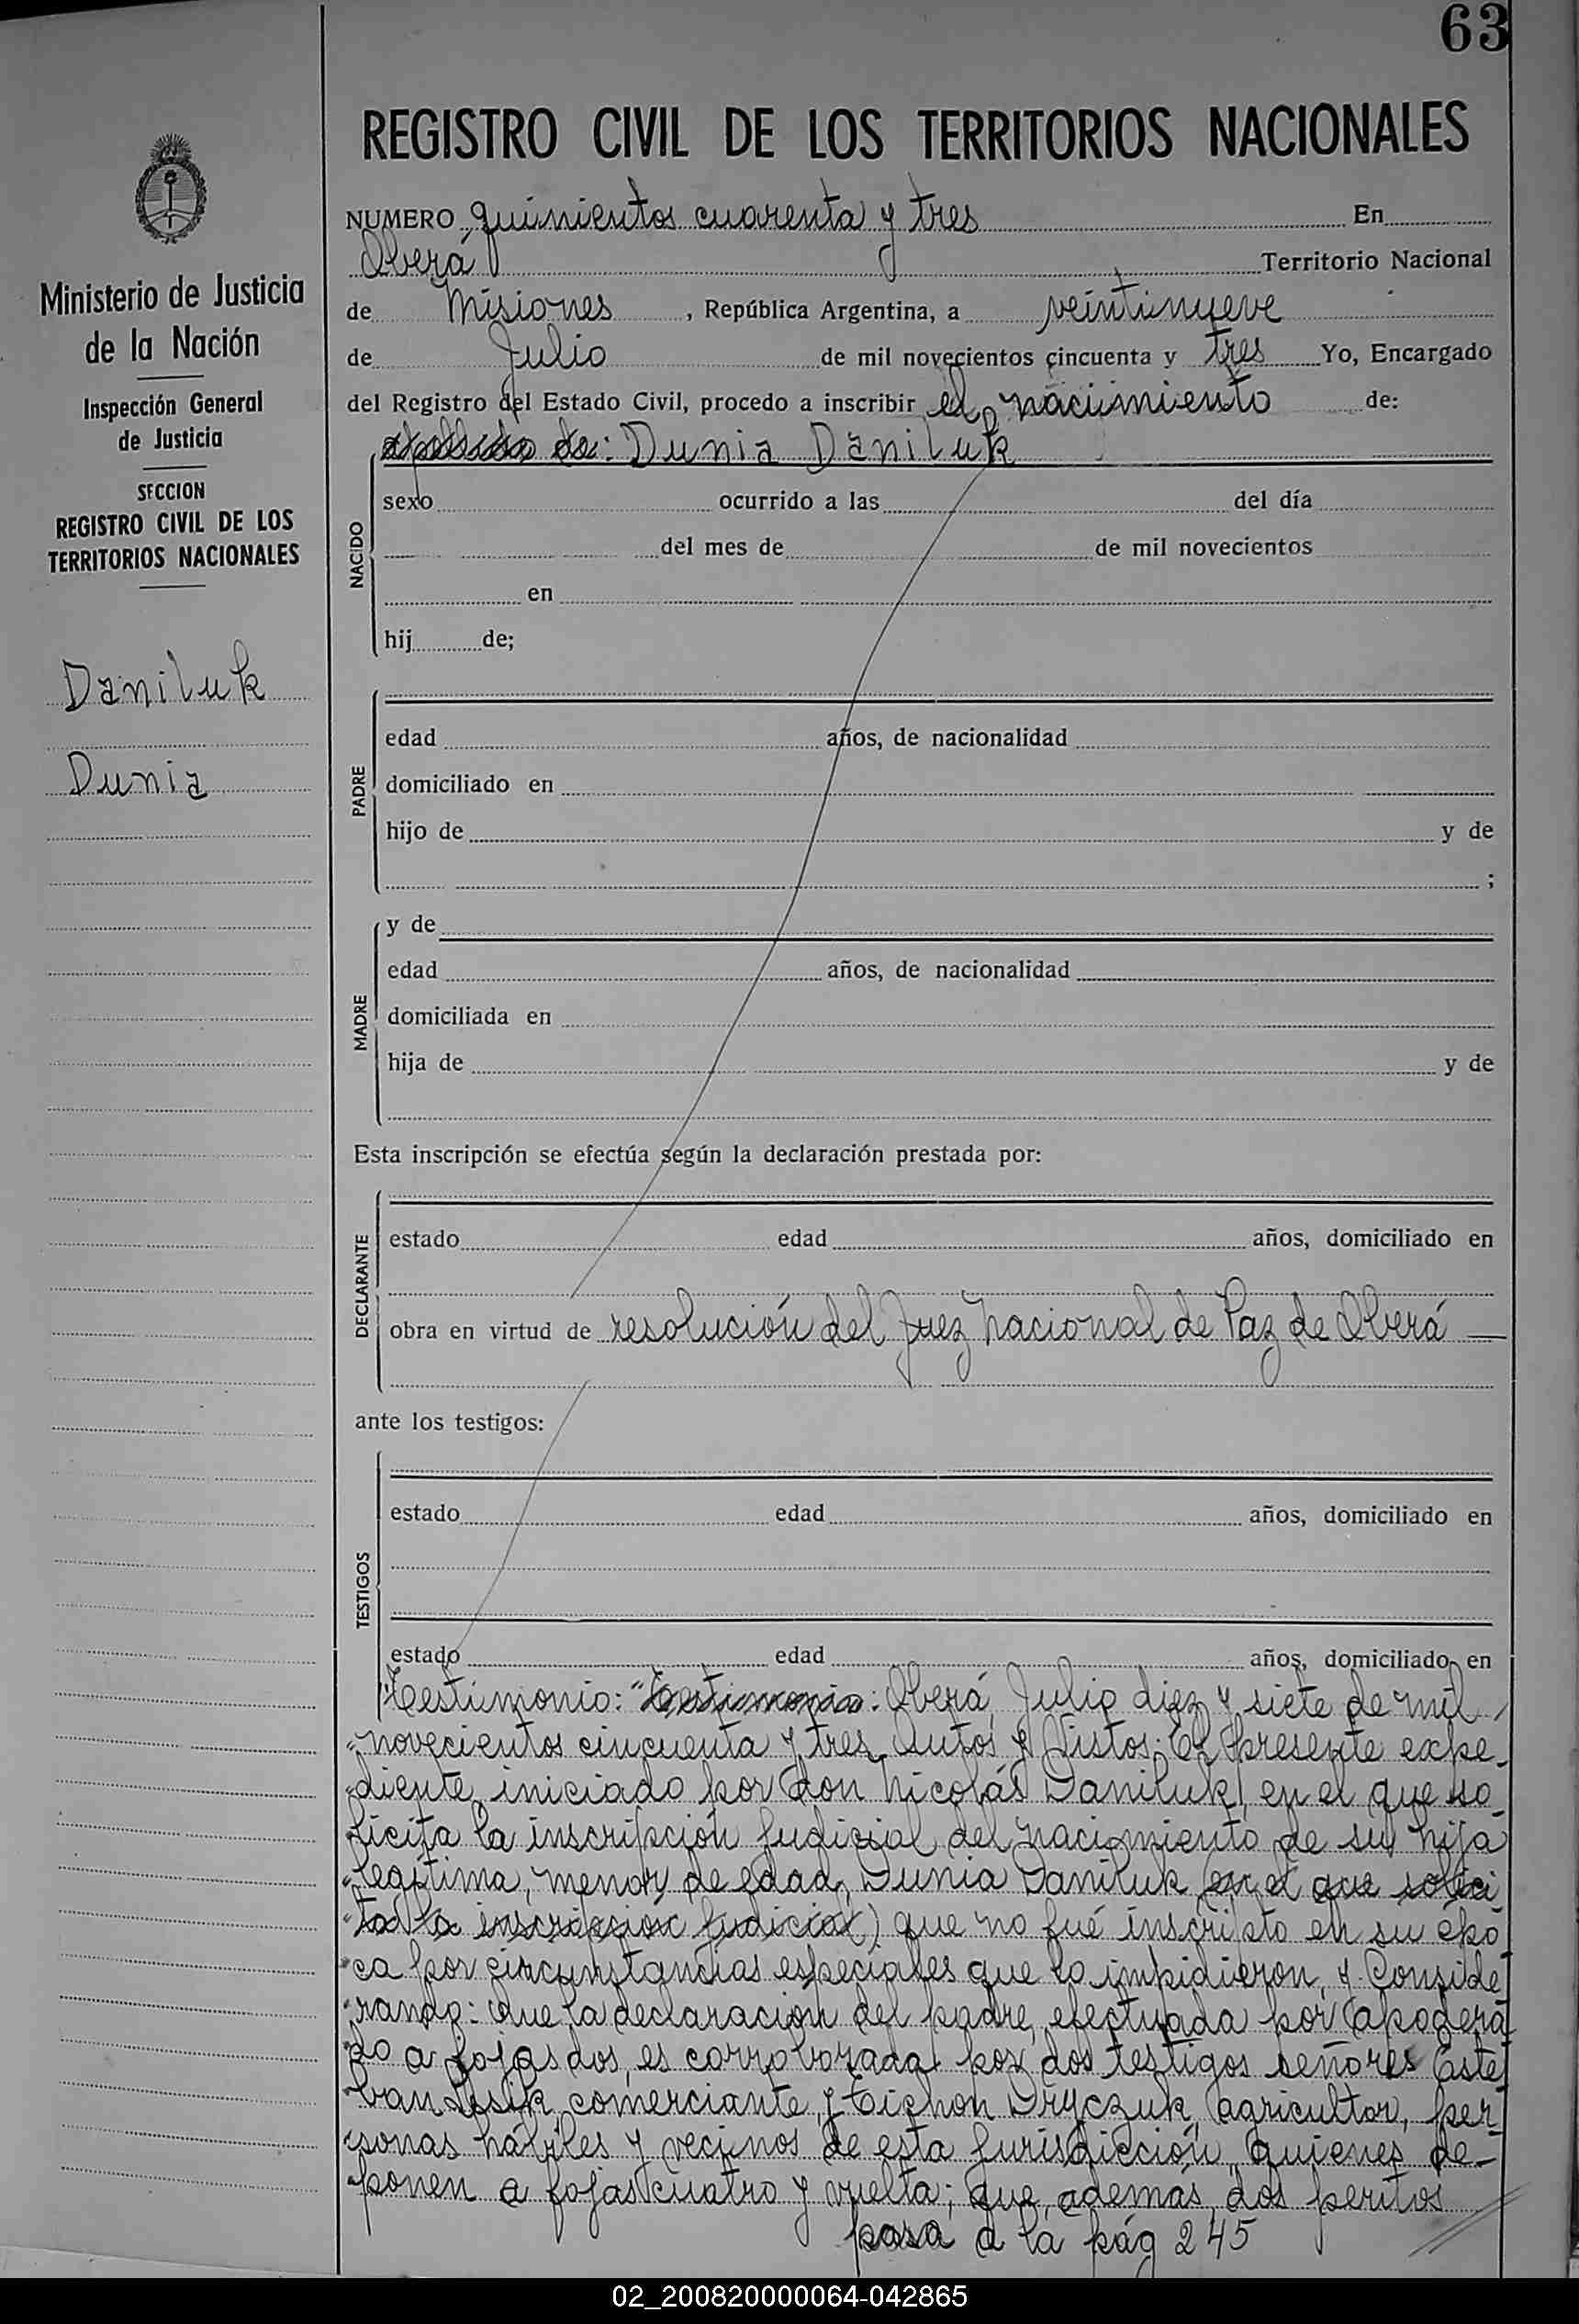 63
REGISTRO CIVIL DE LOS TERRITORIOS NACIONALES
Ministerio de Justicia
de la Nación
Inspección General
de Justicia
SECCION
REGISTRO CIVIL DE LOS
TERRITORIOS NACIONALES
Daniluk
Dunia
NUMERO quinientos cuarenta y tres En
Oberá Territorio Nacional
de Misiones, República Argentina, a veintinueve
de Julio de mil novecientos cincuenta y tres Yo, Encargado
del Registro del Estado Civil, procedo a inscribir el nacimiento de:
apellido de: Dunia Daniluk
NACIDO
sexo ocurrido a las del día
del mes de de mil novecientos
en
hij de;
PADRE
edad años, de nacionalidad
domiciliado en
hijo de y de
;
MADRE
y de
edad años, de nacionalidad
domiciliada en
hija de y de
Esta inscripción se efectúa según la declaración prestada por:
DECLARANTE
estado edad años, domiciliado en
obra en virtud de resolución del Juez Nacional de Paz de Oberá —
ante los testigos:
TESTIGOS
estado edad años, domiciliado en
estado edad años, domiciliado en
Testimonio: "Testimonio: Oberá, Julio diez y siete de mil
"novecientos cincuenta y tres, Autos y Vistos: El presente expe-
"diente iniciado por don Nicolás Daniluk, en el que so-
licita la inscripción judicial del nacimiento de su hija
"legítima, menor de edad, Dunia Daniluk (en el que solici
"ta la inscripción judicial) que no fué inscripto en su épo
"ca por circunstancias especiales que lo impidieron, y Conside
"rando: Que la declaración del padre, efectuada por apodera
do a fojas dos, es corroborada por dos testigos señores Este
"ban comerciante, y Tichon Dryczuk, agricultor, per-
"sonas hábiles y vecinos de esta jurisdicción, quienes de-
"ponen a fojas cuatro y vuelta; que, además, dos peritos
pasa a la pág 245
02_200820000064-042865